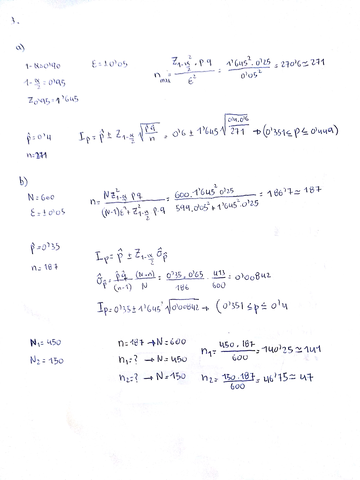 1.
a)
1-α=0'90 ε=±0'05 n max = Z²1-α/2 · p q / ε² = 1'645² · 0'25 / 0'05² = 270'6 ≃ 271
1-α/2=0'95
Z0'95=1'645
p̂=0'4 Ip = p̂ ± Z1-α/2 √(p̂ q̂ / n) = 0'6 ± 1'645 √(0'4·0'6 / 271) → (0'351 ≤ p ≤ 0'449)
n=271
b)
N=600 n = N Z²1-α/2 p q / ((N-1)ε² + Z²1-α/2 p q) = 600 · 1'645² 0'25 / (599 · 0'05² + 1'645² · 0'25) = 186'7 ≃ 187
ε=±0'05
p̂=0'35 Ip = p̂ ± Z1-α/2 σ̂p̂
n=187
σ̂p̂ = p̂ q̂ / (n-1) · (N-n) / N = 0'35 · 0'65 / 186 · 413 / 600 = 0'00842
Ip = 0'35 ± 1'645 √0'00842 → (0'351 ≤ p ≤ 0'4
N1=450 n=187 → N=600 n1 = 450 · 187 / 600 = 140'25 ≃ 141
N2=150 n1=? → N=450
n2=? → N=150 n2 = 150 · 187 / 600 = 46'75 ≃ 47